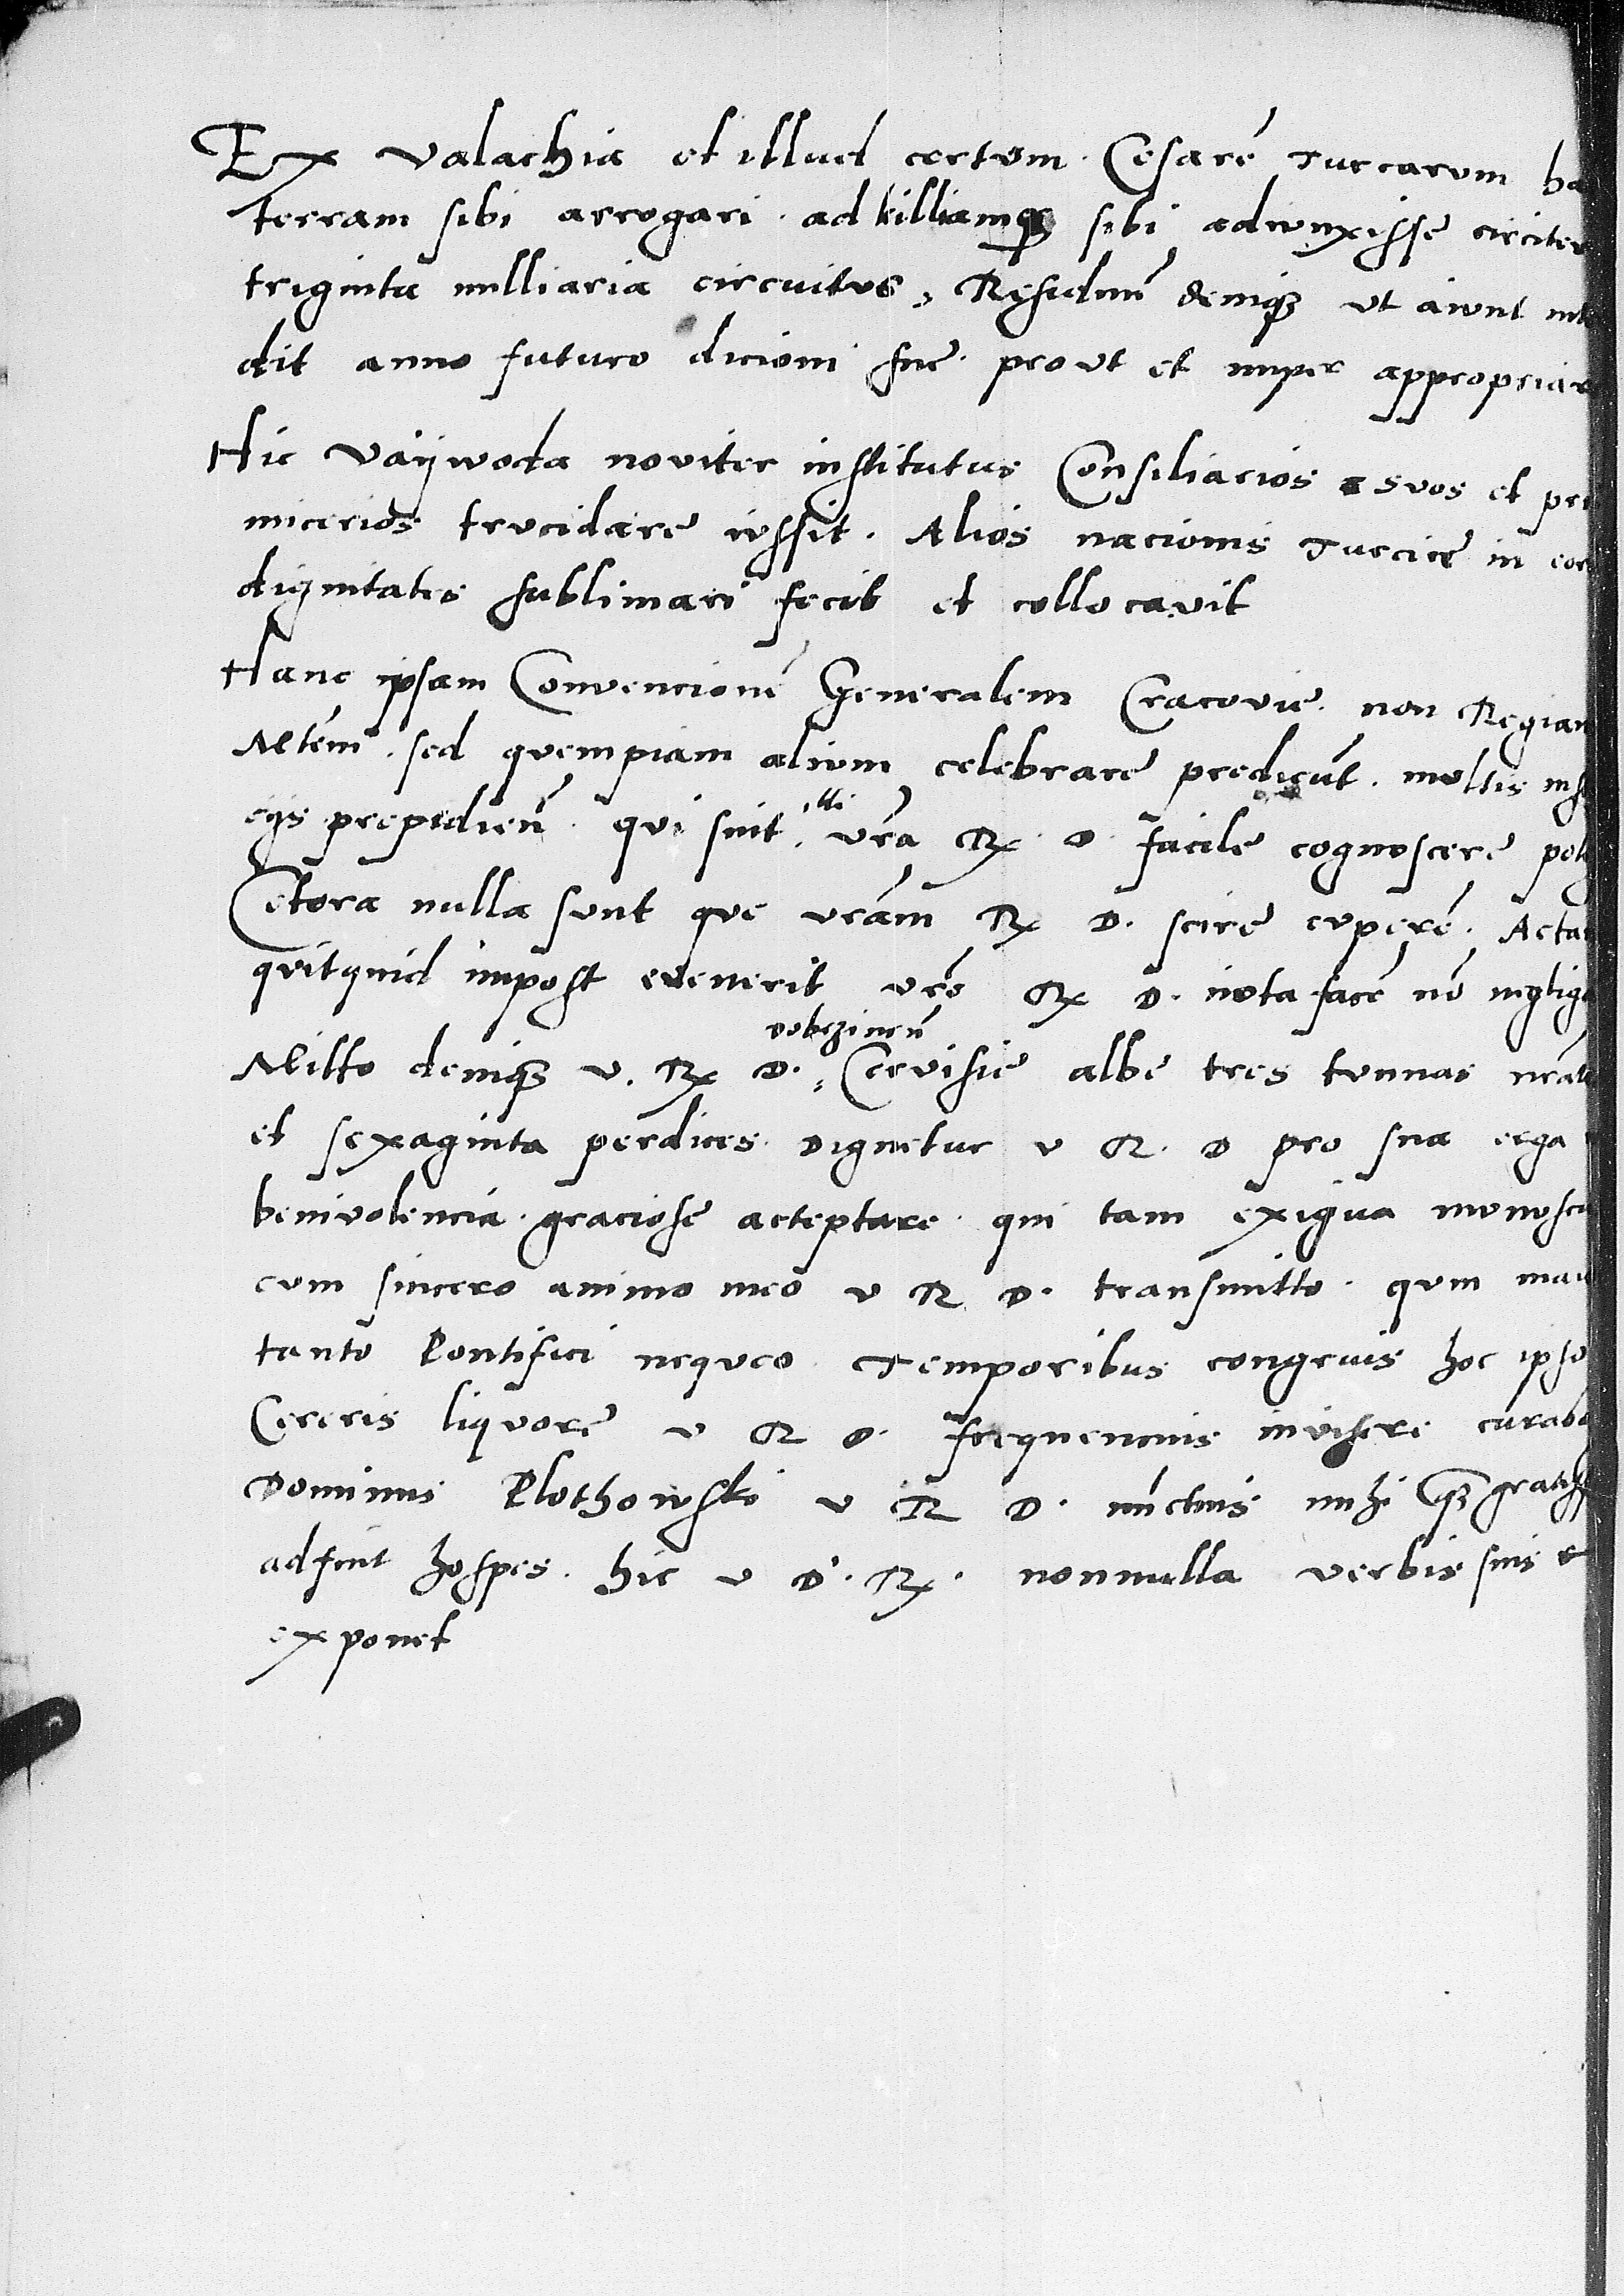 Ex Valachia et illud certum. Cesarē Turcarum ha
terram sibi arrogari. ad killiamqȝ sibi adiunxisse circiter
triginta milliaria circuitus, Residuū deniqȝ ut aiunt int
dit anno futuro dicioni sue. prout et nuper appropriar
Hic Vaÿwoda noviter institutus Consiliarios suos et pri
micerios trucidare iussit. Alios nacionis Turcice in eor
dignitates sublimari fecit et collocavit
Hanc ipsam Convencionē Generalem Cracovie. non Regiam
Mtēm. sed quempiam alium celebrare predicūt. multis
eijs prepedien̄. qui sint illi, vrā Rx. D. facile cognoscere
Cetera nulla sunt que vrām Rx D. scire cuperē.
quitquid impost evenerit vrē Rx D. nota facē nō neglig
Mitto deniqȝ v. Rx D. Cervisie albe tres tunnas
et sexaginta perdices. Dignetur v R. D pro sua erga
benivolencia. graciose acceptare. qui tam exigua munuscu
cum sincero animo meo v R D. transmitto. qum
tanto Pontifici nequeo. Temporibus congruis hoc ipso
Cereris liquore v R D. frequencius invisere curabo
Dominus Plothowski v R D. nūctius mihi qȝ gratiss
adfuit hospes. hic v D. Rx. nonnulla verbis suis
exponet